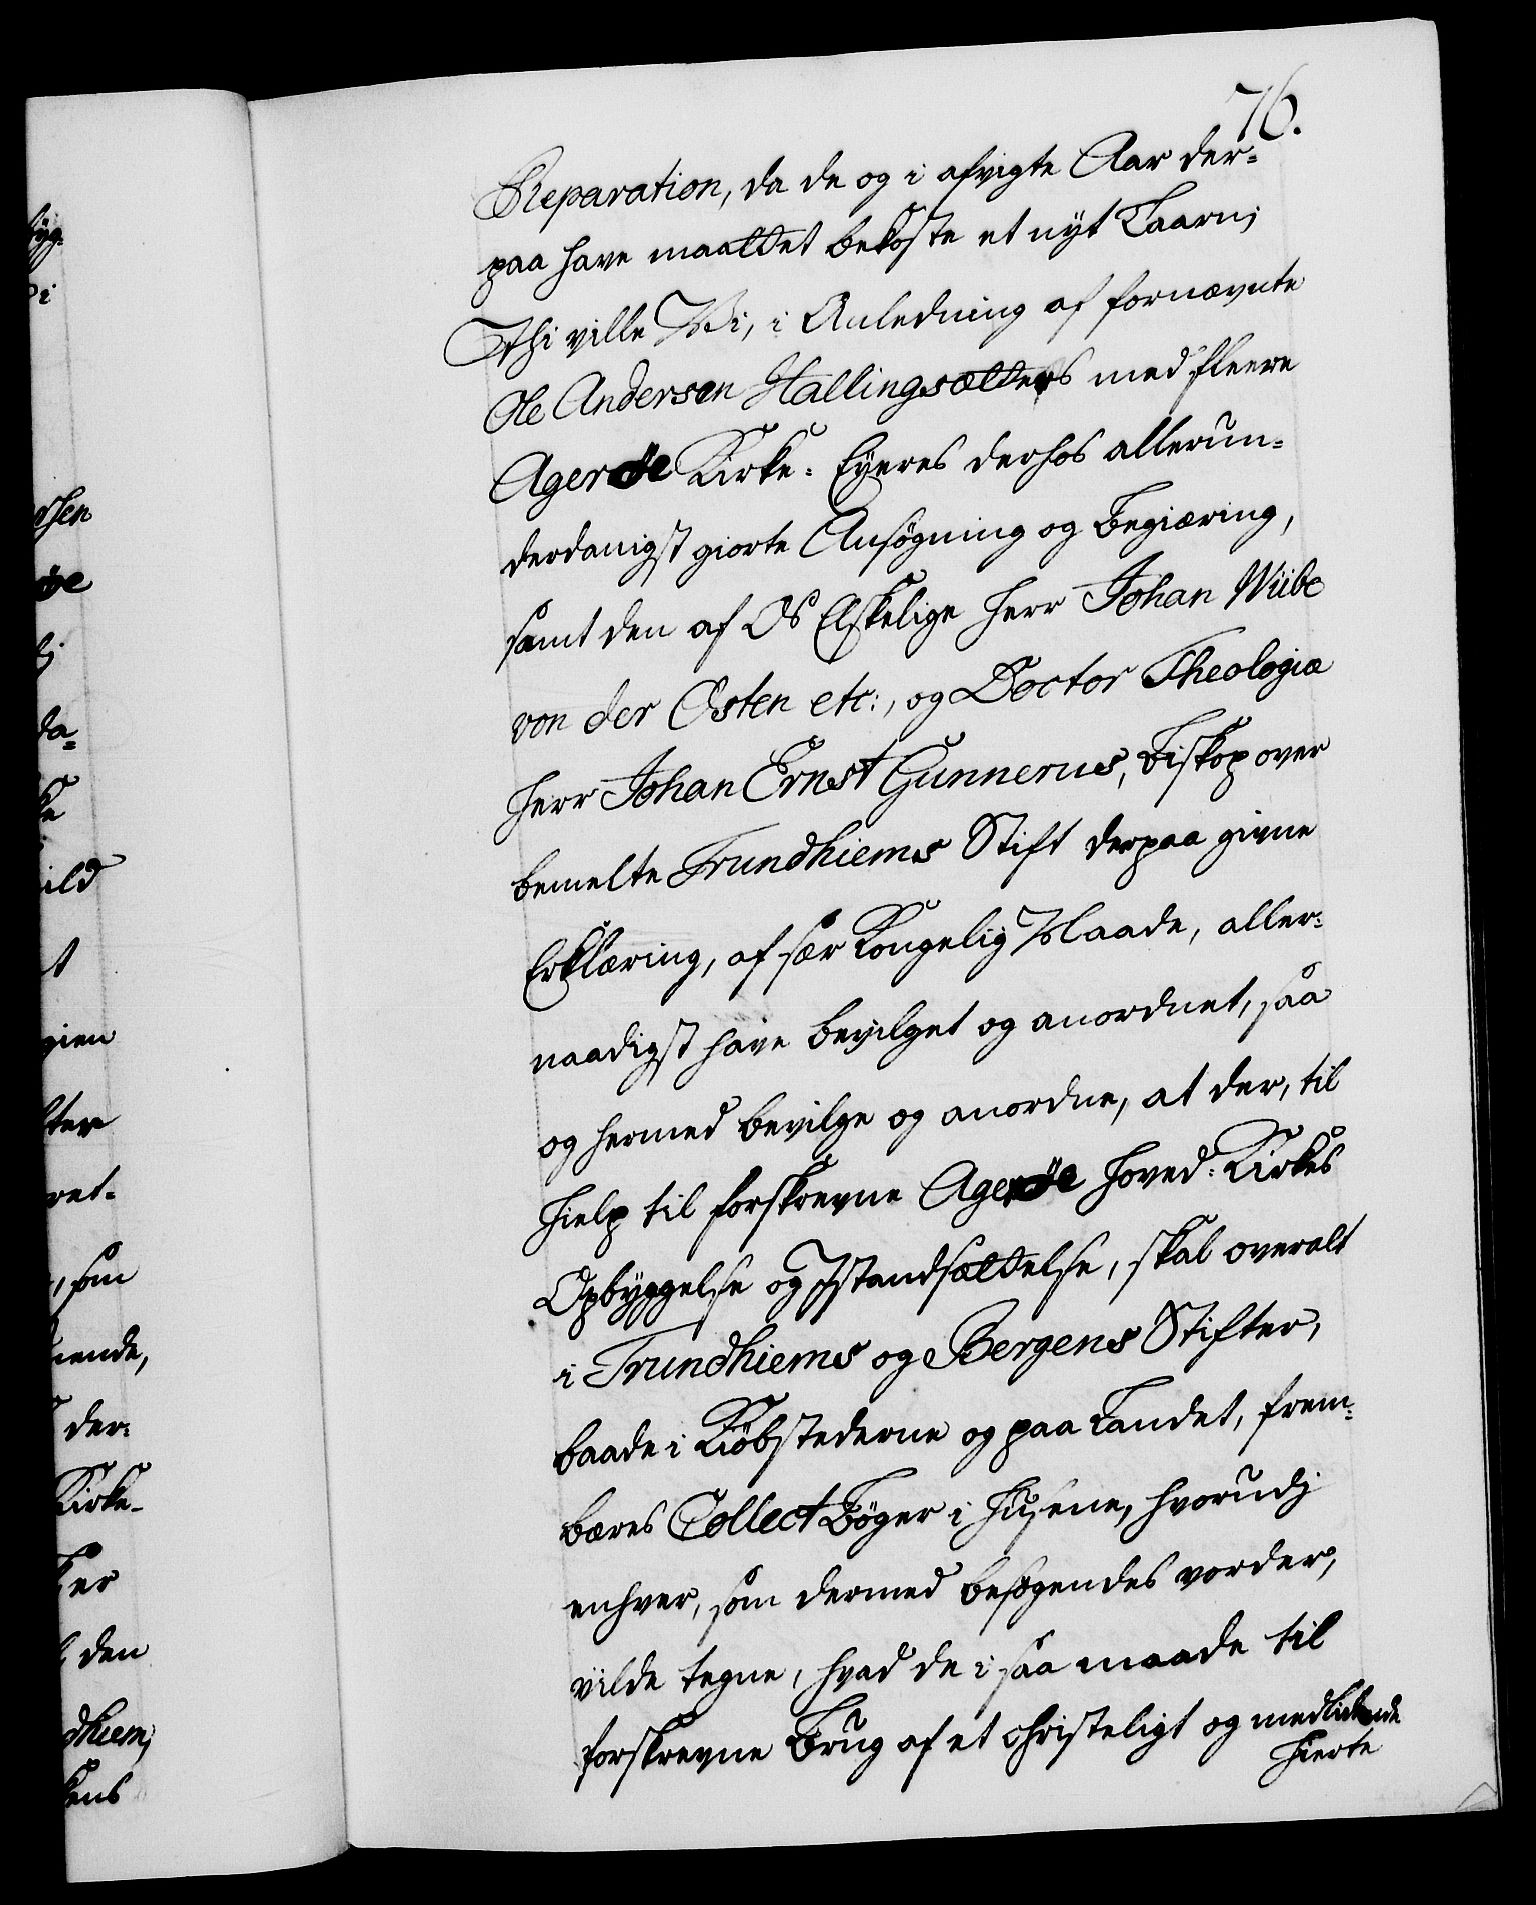 76.
Reparation, da de og i afvigte Aar der-
paa have maattet bekoste et nyt Taarn;
Thi ville Vi, i Anledning af fornævnte
Ole Andersen Hallingsætters med fleere
Agerøe Kirke- Eyeres derhos allerun-
derdanigst giorte Ansøgning og Begiæring,
samt den af Os Elskelige Herr Johan Wiibe
von der Osten etc:, og Doctor Theologiæ
Herr Johan Ernst Gunnerus, Biskop over
bemelte Trundhiems Stift derpaa givne
Erklæring, af sær Kongelig Naade, aller-
naadigst have bevilget og anordnet, saa
og hermed bevilge og anordne, at der, til
Hielp til forskrevne Agerøe Hoved-Kirkes
Opbyggelse og Istandsættelse, skal overalt
i Trundhiems og Bergens Stifter,
baade i Kiøbstederne og paa Landet, frem-
bæres Collect Bøger i Husene, hvorudj
enhver, som dermed besøgendes vorder,
vilde tegne, hvad de i saa maade til
forskrevne Brug af et christeligt og medlidende
Hierte